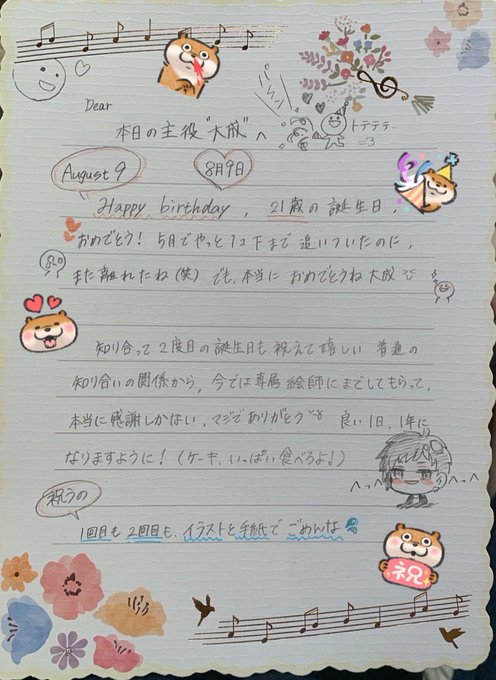 Dear
本日の主役"大成"へ
パーン
トテテテ…
August 9
8月9日
Happy birthday, 21歳の誕生日,
おめでとう! 5月でやっと1コ下まで追いついたのに,
また離れたね(笑) でも,本当に おめでとうね大成
知り合って2度目の誕生日も祝えて嬉しい 普通の
知り合いの関係から,今では専属絵師にまでしてもらって,
本当に感謝しかない,マジでありがとう 良い1日,1年に
なりますように!(ケーキ,いっぱい食べろよ!)
へへっ
へへっ
祝うの
1回目も2回目も,イラストと手紙でごめんな
祝